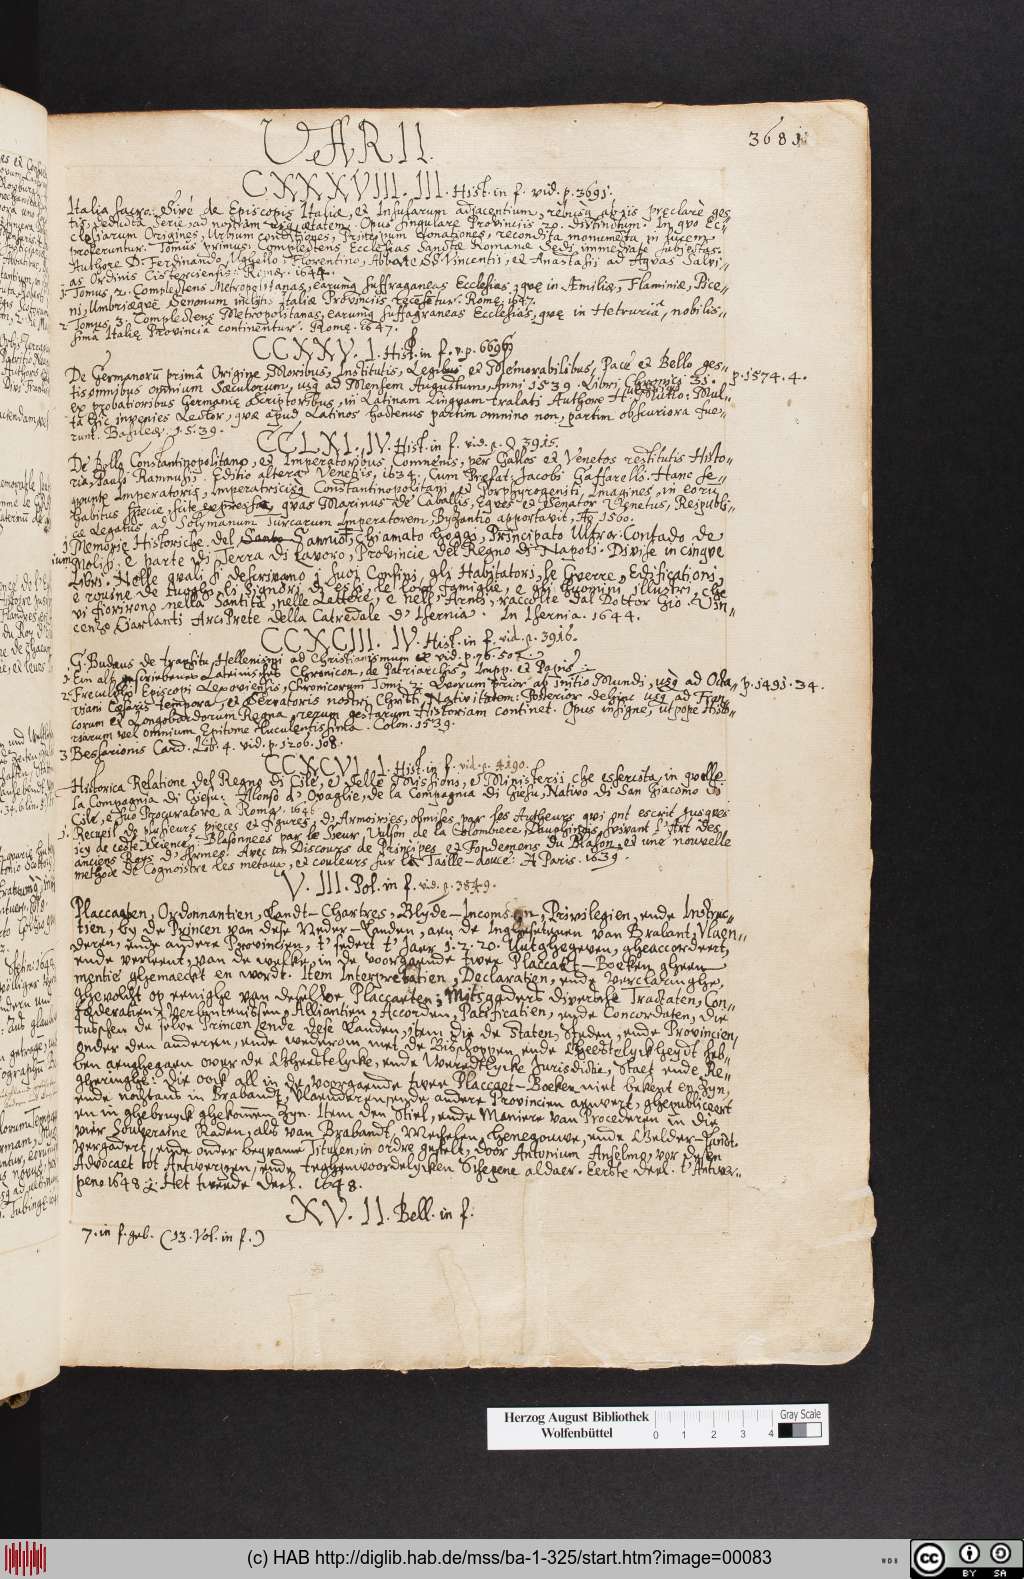 VARII.
3681
CXXXVIII. III. Hist. in f. vid. p. 3691.
Italia sacra. Sive de Episcopis Italiæ, et Insularum adjacentium, rebusq; ab iis præclare ges-
tis, deducta serie ad nostram usq; ætatem. Opus singulare Provinciis 20. distinctum. In qvo Ec-
clesiarum Origines, Urbium conditiones, Principum donationes, recondita monumenta in lucem
proferuntur. Tomus primus. Complectens Ecclesias Sanctæ Romanæ Sedi immediate subjectas.
Authore D. Ferdinando Ughello Florentino, Abbate SS. Vincentii, et Anastasii ad Aqvas Salvi-
as Ordinis Cisterciensis. Romæ. 1644.
1. Tomus. 2. Complectens Metropolitanas, earumq; suffraganeas Ecclesias, qvæ in Æmiliæ, Flaminiæ, Pice-
ni, Umbriæqve Senonum inclytis Italiæ Provinciis recensetur. Romæ. 1647.
2. Tomus. 3. Complectens Metropolitanas, earumq; suffraganeas Ecclesias, qvæ in Hetruria, nobilis-
sima Italiæ Provincia continentur. Romæ. 1647.
CCXXV. I. Hist. in f. v. p. 6696
De Germanorū prima Origine, Moribus, Institutis, Legibus et Memorabilibus, Pace et Bello ges-
tis omnibus omnium Sæculorum, usq; ad Mensem Augustum, Anni 1539. Libri Chronici 31.
p. 1574. 4.
ex probatioribus Germanicæ Scriptoribus, in Latinam Linguam tralati Authore Huttichio. Mul-
ta hic invenies Lector, qvæ apud Latinos hactenus partim omnino non, partim obscuriora fue-
runt. Basileæ. 1539.
CCLXI. IV. Hist. in f. vid. p. 3915.
De Bello Constantinopolitano, et Imperatoribus Comnenis, per Gallos et Venetos restitutis Histo-
ria, Pauli Ramnusii. Editio altera Venetiis, 1634. Cum Præfat. Jacobi Gaffarelli. Hanc se-
quuntr Imperatoris, Imperatrisciq; Constantinopolitani, et Porphyrogeniti, Imagines, in eorū
habitus specie scite expressæ, qvas Marinus de Caballis, Eqves et Senator Venetus, Reipubli-
cæ Legatus ad Solymanum Turcarum Imperatorem, Byzantio apportavit, Ao 1560.
1. Memorie Historiche del Sannio, Chiamato hoggi, Principato Ultra, Contado de
Molisi, e parte di Terra di Lavoro, Provincie del Regno di Napoli. Divise in cinqve
Libri. Nelle quali si descrivono i suoi Confini, gli Habitatori, le Guerre, Edificationi,
e rovine de luoghi, li Signori di essi, le loro famiglie, e gli huomini illustri, che
vi fiorirono nella Santità, nelle Lettere, e nell' Armi, raccolte dal Dottor Gio. Vin-
cenzo Ciarlanti ArciPrete della Catredale d' Isernia. In Isernia. 1644.
CCXCIII. IV. Hist. in f. vid. p. 3916.
G. Budæus de transitu Hellenismi ad Christianismum
Freculphi Episcopi Lexoviensis, Chronicorum Tomi 2. Qvorum prior ab initio Mundi, usq; ad Octa-
p. 1491. 34.
viani Cæsaris tempora, et Servatoris nostri Christi Nativitatem: Posterior dehinc usq; ad Fran-
corum et Longobardorum Regna, rerum gestarum Historiam continet. Opus insigne, ut pote Histo-
riarum vel omnium Epitome luculentissima. Colon. 1539.
3 Bessarionis Card. Lib. 4. vid. p. 1206. 108.
CCXCVI. I. Hist. in f. vid. p. 4190.
Historica Relatione del Regno di Cile, e delle Missioni, e Ministerii che esercita in quelle
la Compagnia di Giesu. Alonso d' Ovaglie, de la Compagnia di Giesu, Nativo di San Giacomo di
Cile, e suo Procuratore à Roma. 1646
1. Recueil de plusieurs pieces et Figures d' Armoiries, obmises par les Autheurs qui ont escrit jusques
icy de ceste Science. Blasonnees par le Sieur, Vulson de la Colombiere Dauphinois, suivant l' Art des
anciens Roys d' Armes. Avec un Discours de Principes et Fondemens du Blason, et une nouvelle
methode de Cognoistre les metaux, et couleurs sur la Taille-douce. A Paris. 1639.
V. III. Pol. in f. vid. p. 3849.
Placcaeten, Ordonnantien, Landt-Chartres, Blyde-Incomsten, Privilegien, ende Instruc-
tien, by de Princen van dese Neder-Landen, aen de Inghesetenen van Brabant, Vlaen-
deren, ende andere Provincien, t' sedert t' Jaer 1220. Uutghegeven, gheaccordeert,
ende verleent, van de welke, in de voorgaende twee Placcaet-Boeken, gheen
mentie ghemaeckt en wordt. Item Interpretatien, Declaratien, ende Verclaringhe,
ghevolght op eenighe van deselve Placcaeten; Mitsgaders diversche Tractaten, Con-
fœderatien, Verbintenissen, Alliantien, Accorden, Pacificatien, ende Concordaten, die
tusschen de selve Princen, ende dese Landen, item die de Staten, Steden, ende Provincien,
onder den anderen, ende wederom met de Bisschoppen, ende Gheestelyckheydt heb-
ben aengegaen over de Gheestelycke, ende Wereltlycke Jurisdictie, Staet ende Re-
gheringhe: die oock all in de voorgaende twee Placcaet-Boeken niet bekent en zyn,
ende nochtans in Brabandt, Vlaenderen, ende andere Provincien aenveert, ghepubliceert
en in ghebruyck ghekomen zyn. Item den Stiel, ende Maniere van Procederen in die
vier Souveraine Raden, als van Brabandt, Mechelen, Henegouwe, ende Gelder-Landt.
Vergadert, ende onder beqvame Titulen, in ordre gestelt, door Antonium Anselmo, vor desen
Advocaet tot Antwerpen, ende teghenwoordelycken Schepene aldaer. Eerste deel. t' Antwer-
pen. 1648. Het tweede deel. 1648.
XV. II. Bell. in f.
7. in f. geb. (13. Vol. in f.)
Herzog August Bibliothek
Wolfenbüttel
0 1 2 3 4
Gray Scale
(c) HAB http://diglib.hab.de/mss/ba-1-325/start.htm?image=00083
WDB
cc BY SA